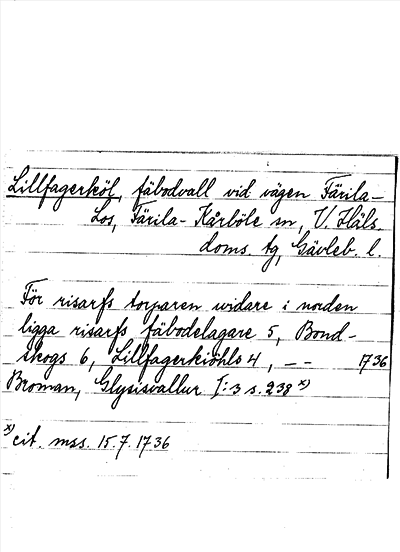 Lillfagerköl, fäbodvall vid vägen Färila-
Los, Färila-Kårböle sn, V. Häls.
doms. tg, Gävleb. l.
För risarfs torparen widare i norden
ligga risarfs fäbodelagare 5, Bond-
skogs 6, Lillfagerkiöhls 4, – – 1736
Broman, Glysisvallur I:3 s. 238 x)
x) cit. mss. 15.7.1736